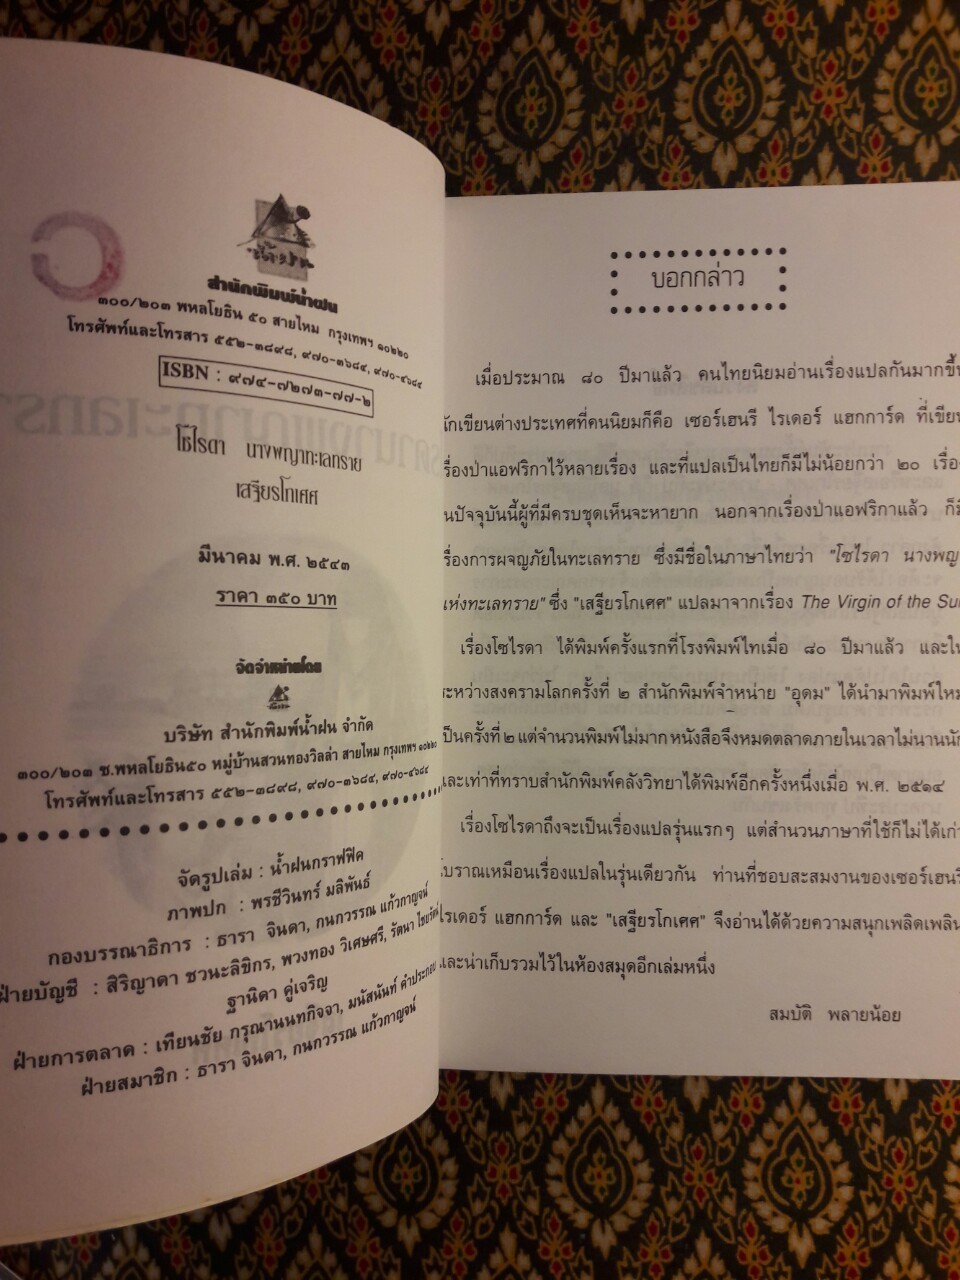 สำนักพิมพ์น้ำฝน
๓๐๐/๒๐๓ พหลโยธิน ๕๐ สายไหม กรุงเทพฯ ๑๐๒๒๐
โทรศัพท์และโทรสาร ๕๕๒-๓๘๙๘, ๙๗๐-๓๖๘๔, ๙๗๐-๔๖๘๔
ISBN : ๙๗๔-๗๒๗๓-๗๗-๒
โซไรดา นางพญาทะเลทราย
เสฐียรโกเศศ
มีนาคม พ.ศ. ๒๕๔๓
ราคา ๓๕๐ บาท
จัดจำหน่ายโดย
บริษัท สำนักพิมพ์น้ำฝน จำกัด
๓๐๐/๒๐๓ ซ.พหลโยธิน๕๐ หมู่บ้านสวนทองวิลล่า สายไหม กรุงเทพฯ ๑๐๒๒๐
โทรศัพท์และโทรสาร ๕๕๒-๓๘๙๘, ๙๗๐-๓๖๘๔, ๙๗๐-๔๖๘๔
จัดรูปเล่ม : น้ำฝนกราฟฟิค
ภาพปก : พรชีวินทร์ มลิพันธ์
กองบรรณาธิการ : ธารา จินดา, กนกวรรณ แก้วกาญจน์
ฝ่ายบัญชี : สิริญาดา ชวนะลิขิกร, พวงทอง วิเศษศรี, รัตนา ไชยรัตน์
ฐานิดา คู่เจริญ
ฝ่ายการตลาด : เทียนชัย กรุณานนทกิจจา, มนัสนันท์ คำประกอบ
ฝ่ายสมาชิก : ธารา จินดา, กนกวรรณ แก้วกาญจน์
บอกกล่าว
เมื่อประมาณ ๘๐ ปีมาแล้ว คนไทยนิยมอ่านเรื่องแปลกันมากขึ้น
นักเขียนต่างประเทศที่คนนิยมก็คือ เซอร์เฮนรี ไรเดอร์ แฮกการ์ด ที่เขียน
เรื่องป่าแอฟริกาไว้หลายเรื่อง และที่แปลเป็นไทยก็มีไม่น้อยกว่า ๒๐ เรื่อง
ในปัจจุบันนี้ผู้ที่มีครบชุดเห็นจะหายาก นอกจากเรื่องป่าแอฟริกาแล้ว ก็มี
เรื่องการผจญภัยในทะเลทราย ซึ่งมีชื่อในภาษาไทยว่า "โซไรดา นางพญา
แห่งทะเลทราย" ซึ่ง "เสฐียรโกเศศ" แปลมาจากเรื่อง The Virgin of the Sun
เรื่องโซไรดา ได้พิมพ์ครั้งแรกที่โรงพิมพ์ไทเมื่อ ๘๐ ปีมาแล้ว และใน
ระหว่างสงครามโลกครั้งที่ ๒ สำนักพิมพ์จำหน่าย "อุดม" ได้นำมาพิมพ์ใหม่
เป็นครั้งที่ ๒ แต่จำนวนพิมพ์ไม่มาก หนังสือจึงหมดตลาดภายในเวลาไม่นานนัก
และเท่าที่ทราบสำนักพิมพ์คลังวิทยาได้พิมพ์อีกครั้งหนึ่งเมื่อ พ.ศ. ๒๕๑๔
เรื่องโซไรดาถึงจะเป็นเรื่องแปลรุ่นแรกๆ แต่สำนวนภาษาที่ใช้ก็ไม่ได้เก่า
โบราณเหมือนเรื่องแปลในรุ่นเดียวกัน ท่านที่ชอบสะสมงานของเซอร์เฮนรี
ไรเดอร์ แฮกการ์ด และ "เสฐียรโกเศศ" จึงอ่านได้ด้วยความสนุกเพลิดเพลิน
และน่าเก็บรวมไว้ในห้องสมุดอีกเล่มหนึ่ง
สมบัติ พลายน้อย